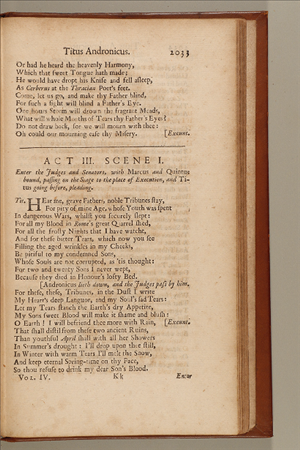 Titus Andronicus. 2033
Or had he heard the heavenly Harmony,
Which that sweet Tongue hath made:
He would have dropt his Knife and fell asleep,
As Cerberus at the Thracian Poet's feet.
Come, let us go, and make thy Father blind,
For such a sight will blind a Father's Eye.
One hours Storm will drown the fragrant Meads,
What will whole Months of Tears thy Father's Eyes?
Do not draw back, for we will mourn with thee:
Oh could our mourning ease thy Misery. [Exeunt.
ACT III. SCENE I.
Enter the Judges and Senators, with Marcus and Quintus
bound, passing on the Stage to the place of Execution, and Ti-
tus going before, pleading.
Tit. HEar me, grave Fathers, noble Tribunes stay,
For pity of mine Age, whose Youth was spent
In dangerous Wars, whilst you securely slept:
For all my Blood in Rome's great Quarrel shed,
For all the frosty Nights that I have watcht,
And for these bitter Tears, which now you see
Filling the aged wrinkles in my Cheeks,
Be pitiful to my condemned Sons,
Whose Souls are not corrupted, as 'tis thought:
For two and twenty Sons I never wept,
Because they died in Honour's lofty Bed.
[Andronicus lieth down, and the Judges pass by him.
For these, these, Tribunes, in the Dust I write
My Heart's deep Languor, and my Soul's sad Tears:
Let my Tears stanch the Earth's dry Appetite,
My Sons sweet Blood will make it shame and blush:
O Earth! I will befriend thee more with Rain, [Exeunt.
That shall distil from these two ancient Ruins,
Than youthful April shall with all her Showers
In Summer's drought: I'll drop upon thee still,
In Winter with warm Tears I'll melt the Snow,
And keep eternal Spring-time on thy Face,
So thou refuse to drink my dear Son's Blood.
VOL. IV. K k Enter